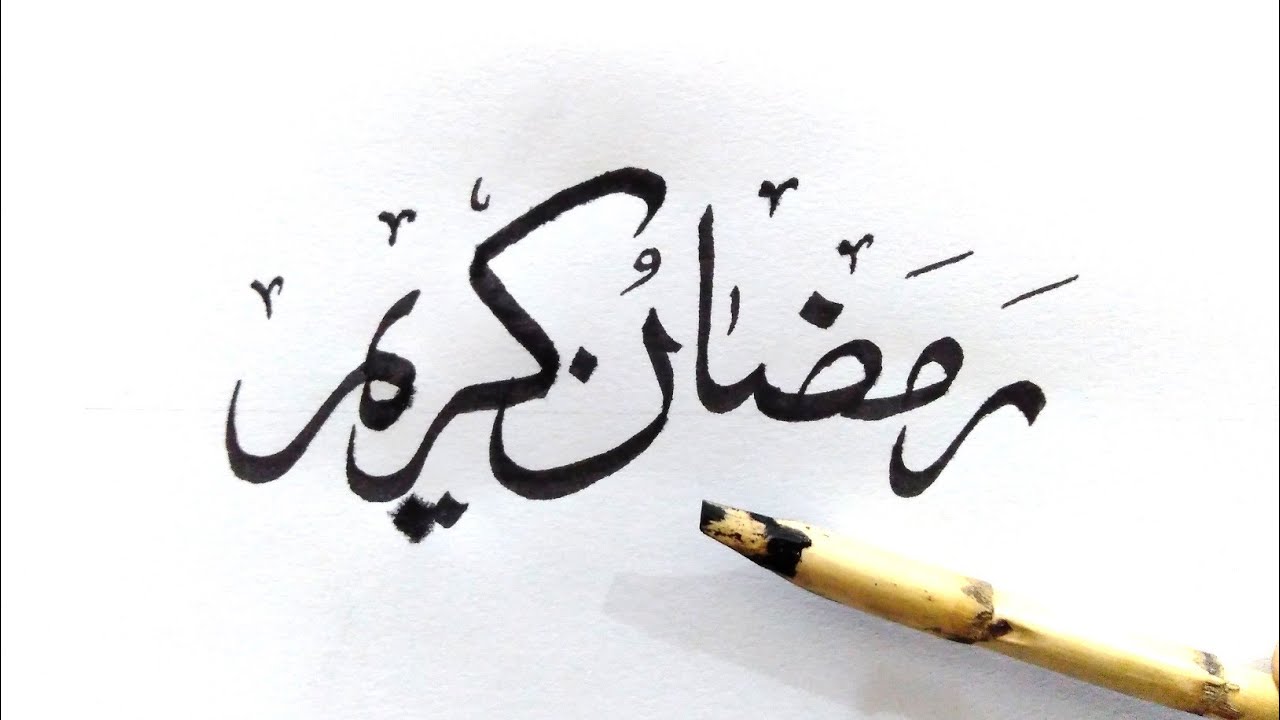 رَمَضَانُ كَرِيم